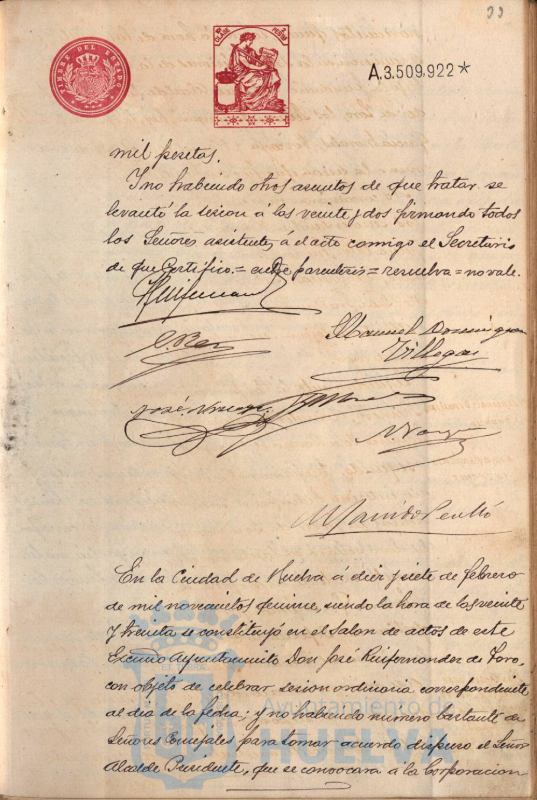 33
TIMBRE DEL ESTADO
CLASE
PESETA
A.3.509.922*
mil pesetas.
Y no habiendo otros asuntos de que tratar se
levantó la sesion á las veinte y dos firmando todos
los Señores asistentes, á el acto comigo el Secretario
de que Certifico.= entre parentesis = resuelva = no vale.
Manuel Dominguez
Villegas
José
En la Ciudad de Huelva á diez y siete de febrero
de mil novecientos quince, siendo la hora de las veinte
y treinta se constituyó en el Salon de actos de este
Excmo Ayuntamiento Don José Ruifernandez de Toro,
con objeto de celebrar sesion ordinaria correspondiente
al dia de la fecha; y no habiendo número bastante de
Señores Concejales para tomar acuerdo dispuso el Señor
Alcalde Presidente, que se convocara á la Corporacion
Ayuntamiento de
HUELVA